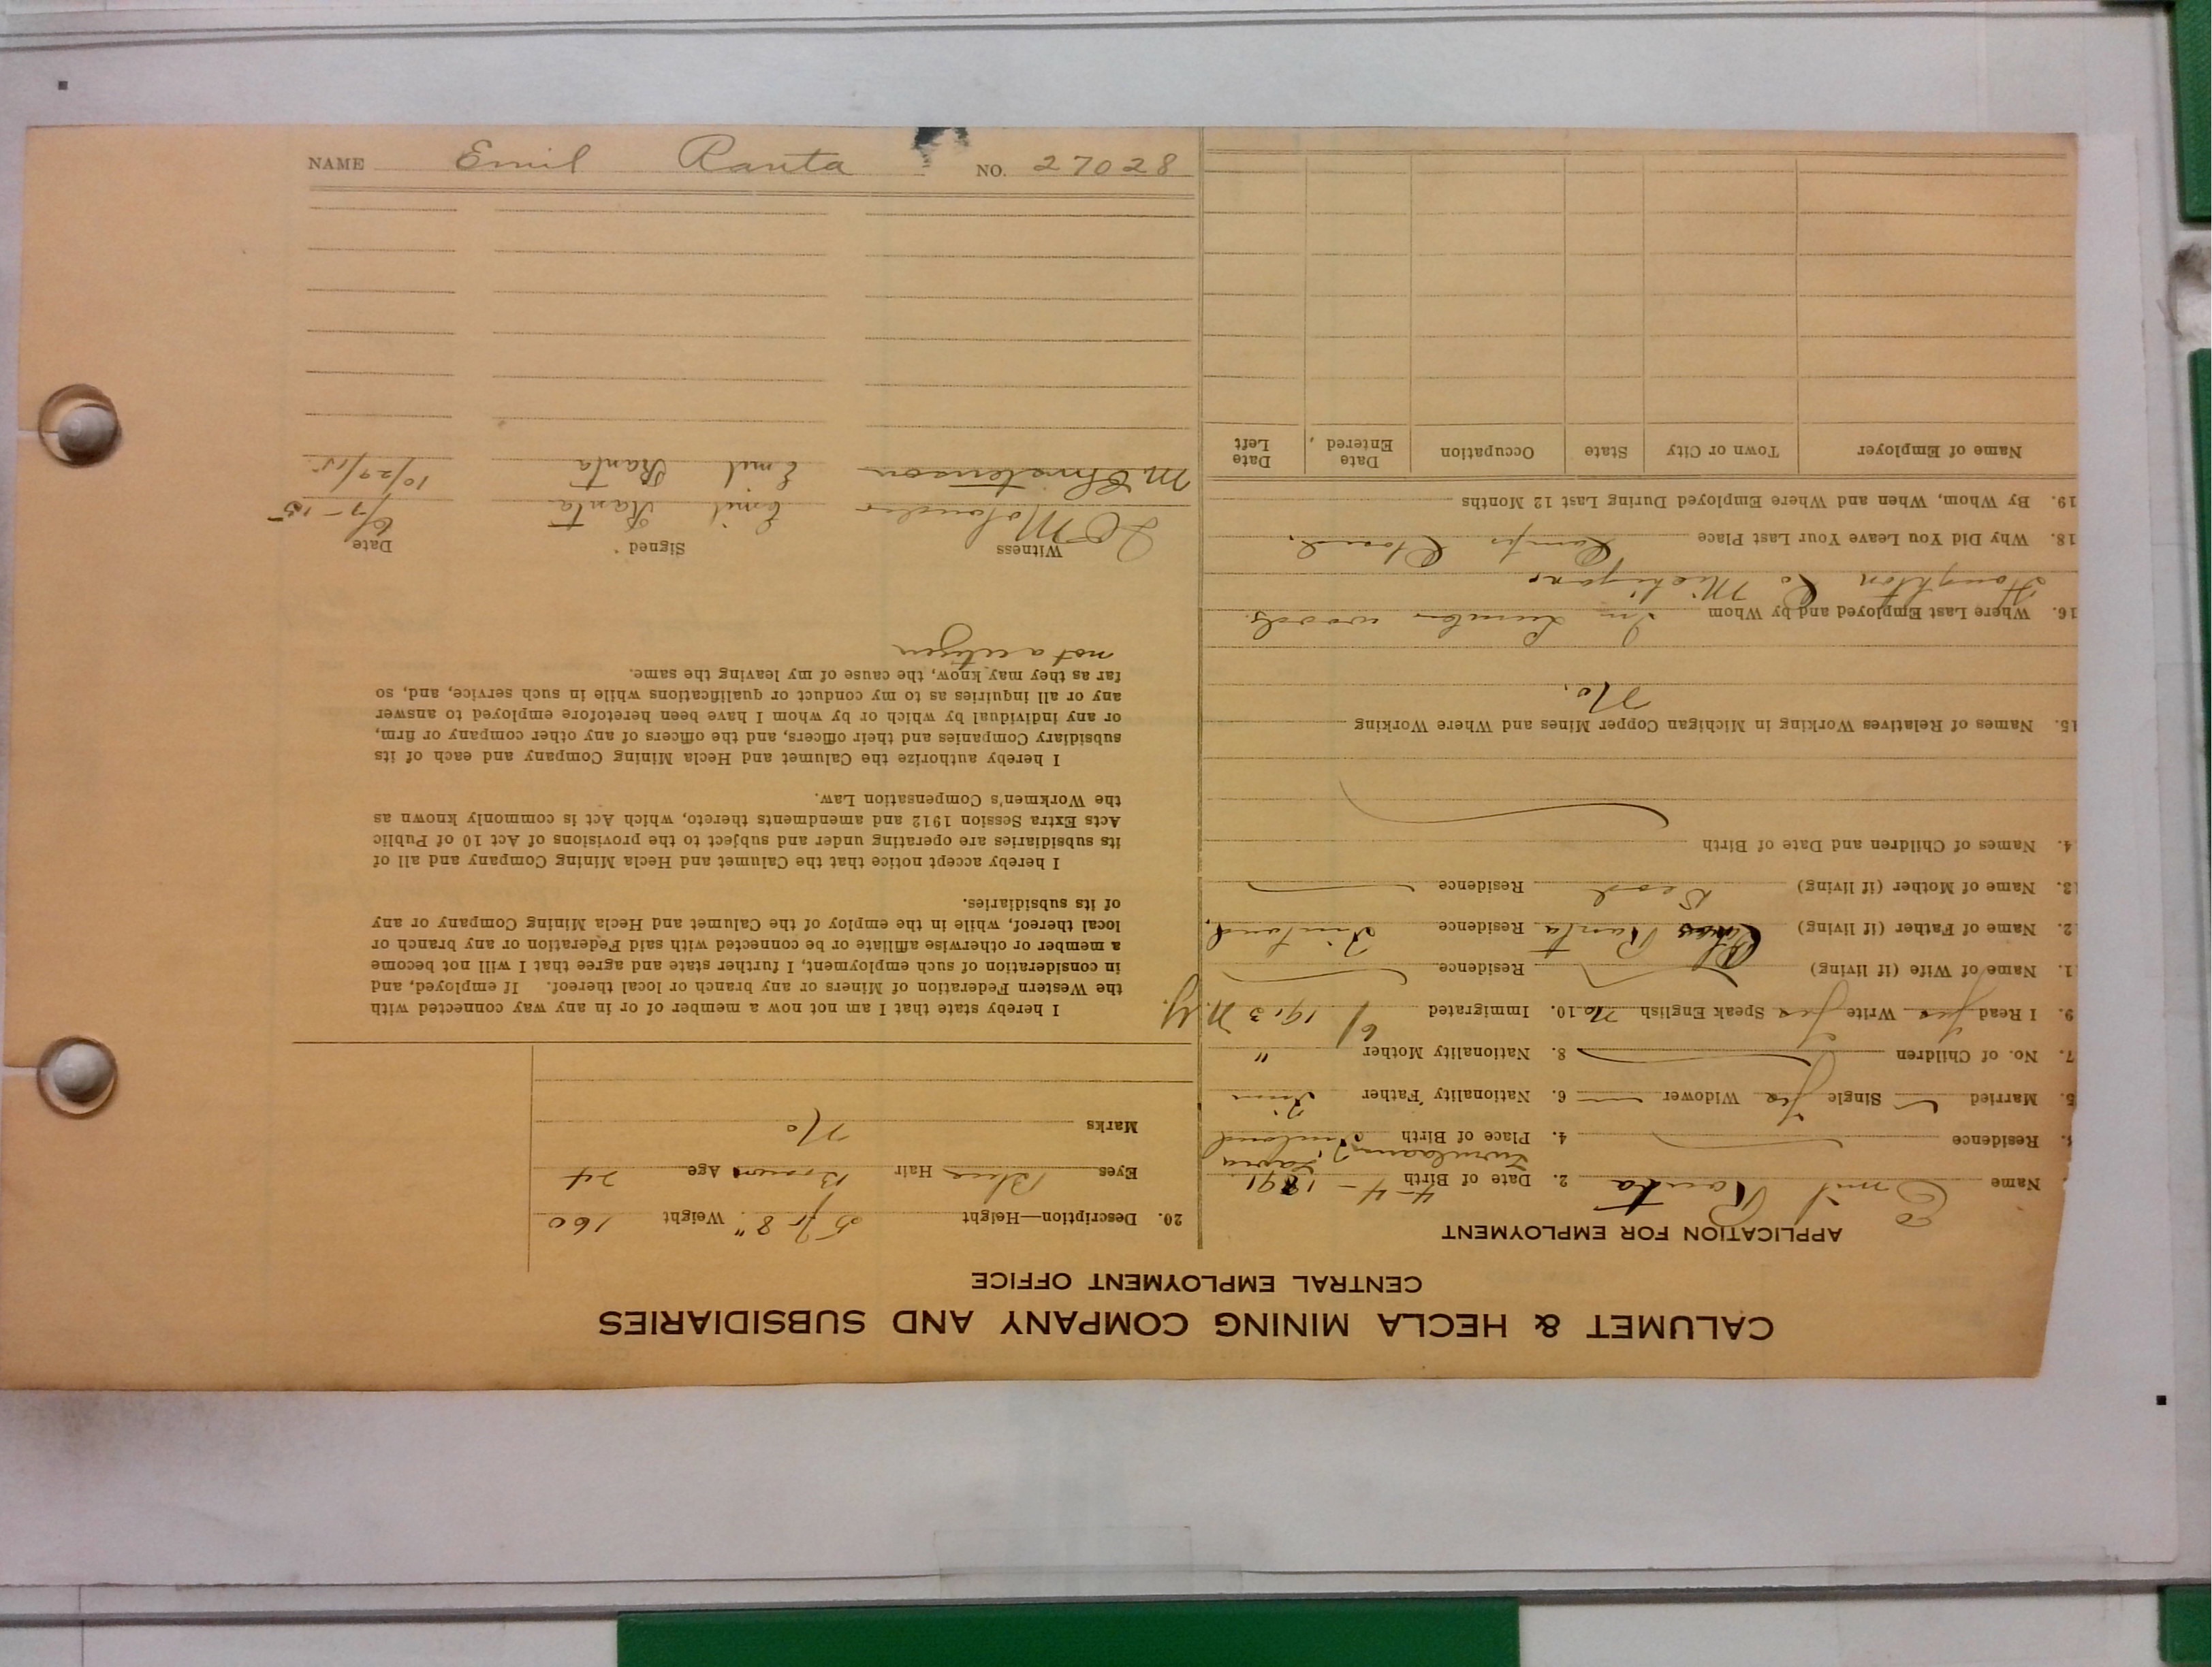 CALUMET & HECLA MINING COMPANY AND SUBSIDIARIES
CENTRAL EMPLOYMENT OFFICE
APPLICATION FOR EMPLOYMENT
Name Emil Ranta 2. Date of Birth 4-4-1891
Residence 4. Place of Birth Finland
5. Married Single Yes Widower 6. Nationality Father Finn
7. No. of Children 8. Nationality Mother "
9. I Read Yes Write Yes Speak English No 10. Immigrated 6/1913 N.Y.
1. Name of Wife (if living) Residence
2. Name of Father (if living) Ranta Residence Finland.
3. Name of Mother (if living) Dead Residence
4. Names of Children and Date of Birth
15. Names of Relatives Working in Michigan Copper Mines and Where Working
No.
16. Where Last Employed and by Whom In Lumber woods.
Houghton Co Michigan.
18. Why Did You Leave Your Last Place Camps Closed.
19. By Whom, When and Where Employed During Last 12 Months
Name of Employer Town or City State Occupation Date Entered Date Left
20. Description—Height 5 ft 8" Weight 160
Eyes Blue Hair Brown Age 24
Marks No
I hereby state that I am not now a member of or in any way connected with
the Western Federation of Miners or any branch or local thereof. If employed, and
in consideration of such employment, I further state and agree that I will not become
a member or otherwise affiliate or be connected with said Federation or any branch or
local thereof, while in the employ of the Calumet and Hecla Mining Company or any
of its subsidiaries.
I hereby accept notice that the Calumet and Hecla Mining Company and all of
its subsidiaries are operating under and subject to the provisions of Act 10 of Public
Acts Extra Session 1912 and amendments thereto, which Act is commonly known as
the Workmen's Compensation Law.
I hereby authorize the Calumet and Hecla Mining Company and each of its
subsidiary Companies and their officers, and the officers of any other company or firm,
or any individual by which or by whom I have been heretofore employed to answer
any or all inquiries as to my conduct or qualifications while in such service, and, so
far as they may know, the cause of my leaving the same.
not a citizen
Witness Signed Date
Molander Emil Ranta 6/7-15
M Christenson Emil Ranta 10/29/15
NAME Emil Ranta NO. 27028